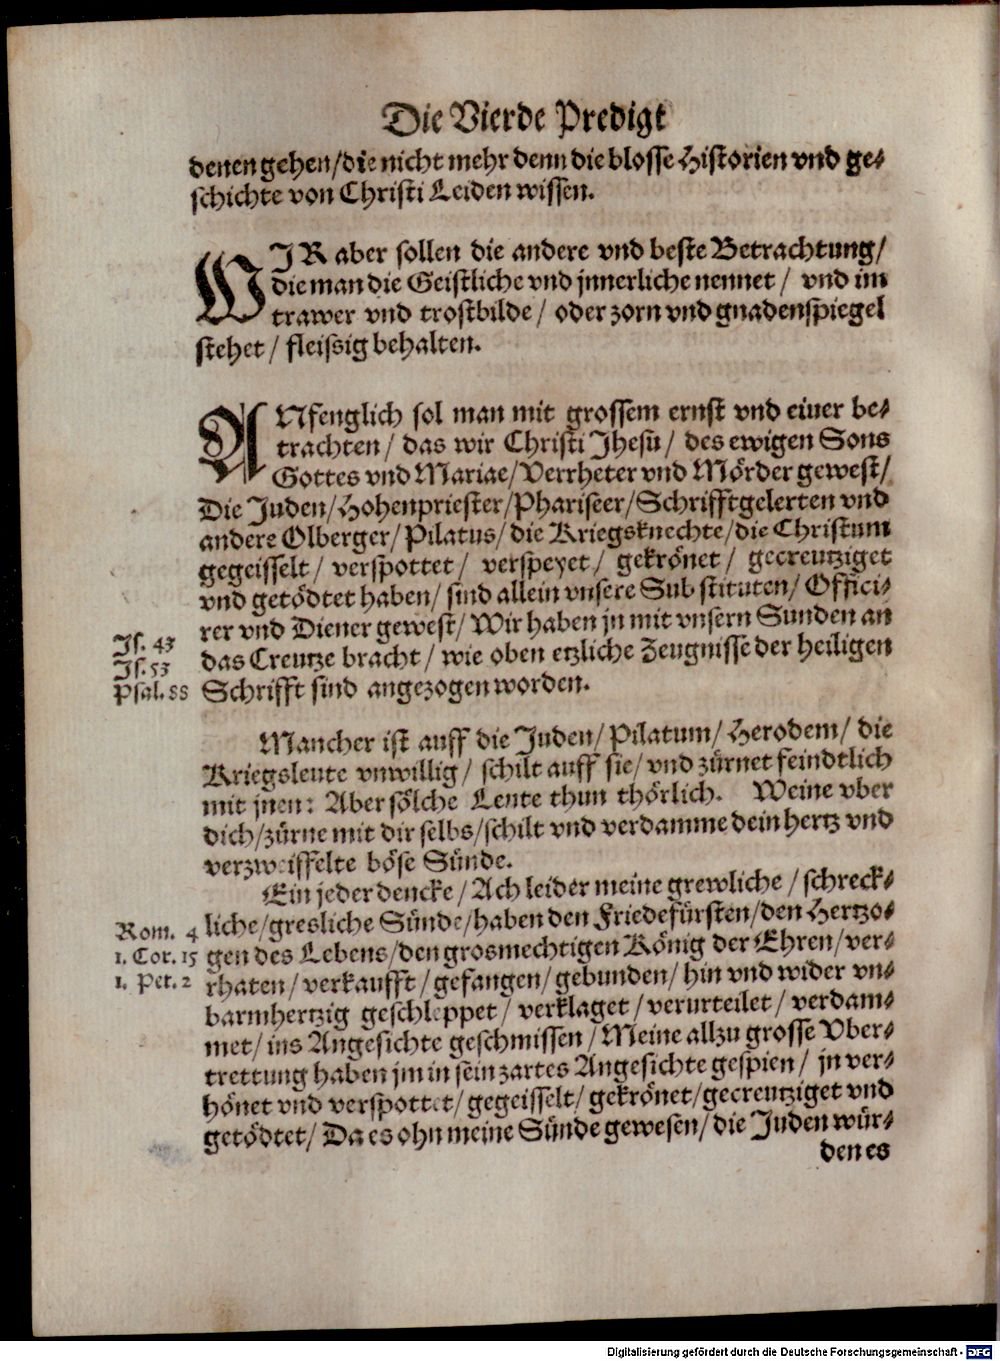 Die Vierde Predigt
denen gehen/die nicht mehr denn die blosse Historien vnd ge-
schichte von Christi Leiden wissen.
WIR aber sollen die andere vnd beste Betrachtung/
die man die Geistliche vnd jnnerliche nennet / vnd im
trawer vnd trostbilde / oder zorn vnd gnadenspiegel
stehet / fleissig behalten.
ANfenglich sol man mit grossem ernst vnd einer be-
trachten / das wir Christi Jhesu / des ewigen Sons
Gottes vnd Mariae/Verrheter vnd Mörder gewest/
Die Juden/Hohenpriester/Phariseer/Schrifftgelerten vnd
andere Olberger/Pilatus/die Kriegsknechte/die Christum
gegeisselt/ verspottet/ verspeyet/ gekrönet/ gecreutziget
vnd getödtet haben/ sind allein vnsere Substituten/ Offici-
rer vnd Diener gewest/ Wir haben jn mit vnsern Sunden an
Js. 43
das Creutze bracht / wie oben etzliche Zeugnisse der heiligen
Js. 53
Schrifft sind angezogen worden.
Psal. 88
Mancher ist auff die Juden/ Pilatum/ Herodem/ die
Kriegsleute vnwillig/ schilt auff sie/ vnd zürnet feindtlich
mit jnen: Aber sölche Leute thun thörlich. Weine vber
dich/zürne mit dir selbs/schilt vnd verdamme dein hertz vnd
verzweiffelte böse Sünde.
Ein jeder dencke / Ach leider meine grewliche / schreck-
Rom. 4
liche/gresliche Sünde/haben den Friedefürsten/den Hertzo-
1. Cor. 15
gen des Lebens/den grosmechtigen König der Ehren/ ver-
1. Pet. 2
rhaten/ verkaufft/ gefangen/ gebunden/ hin vnd wider vn-
barmhertzig geschleppet/ verklaget/ verurteilet/ verdam-
met/ ins Angesichte geschmissen / Meine allzu grosse Vber-
trettung haben jm in sein zartes Angesichte gespien/ jn ver-
hönet vnd verspottet/ gegeisselt/ gekrönet/gecreutziget vnd
getödtet/ Da es ohn meine Sünde gewesen/ die Juden wür-
den es
Digitalisierung gefördert durch die Deutsche Forschungsgemeinschaft - DFG